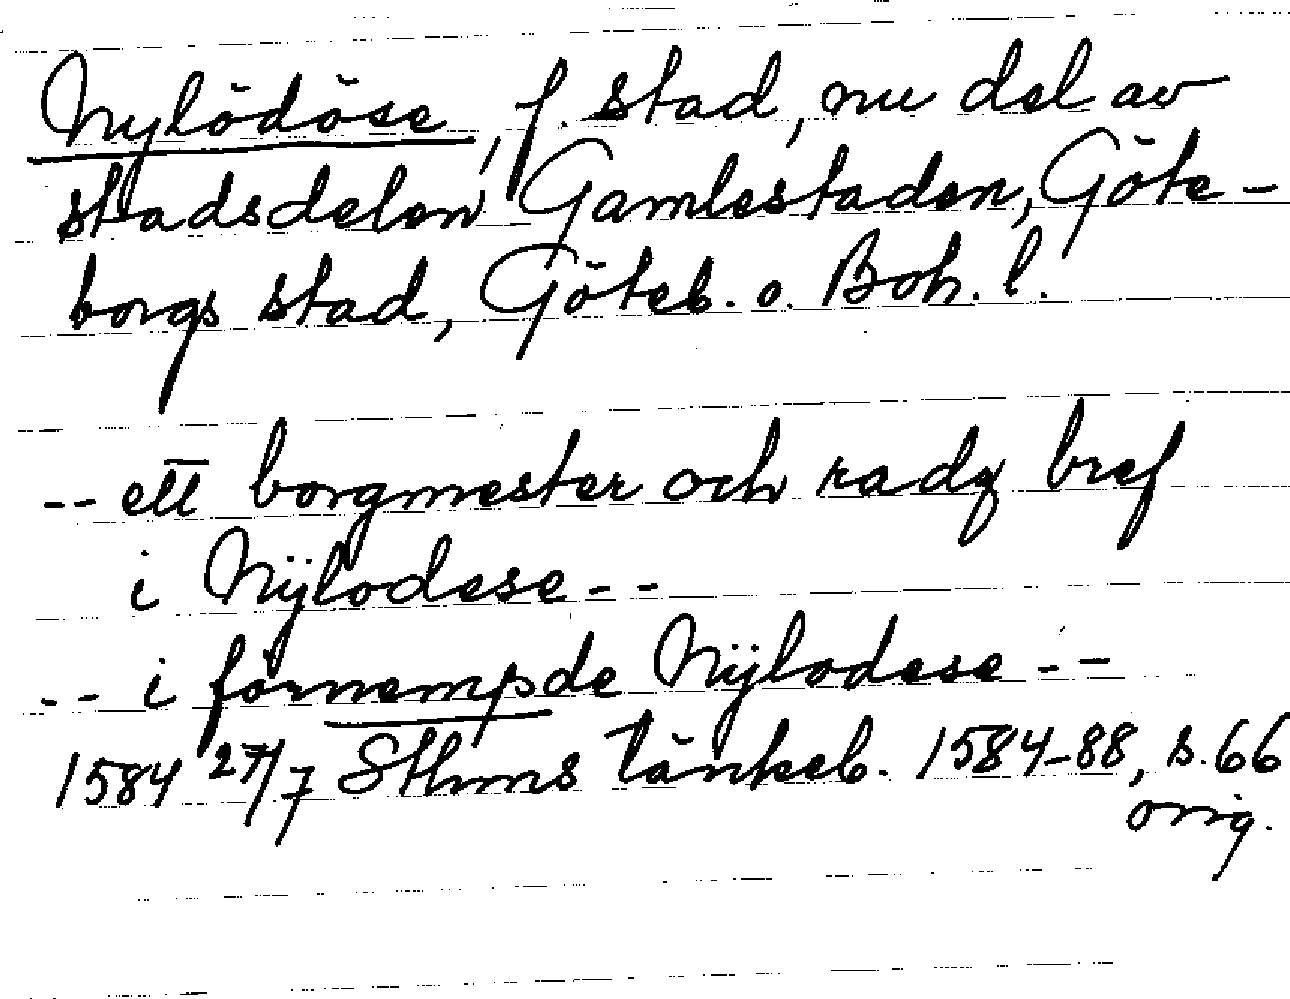 Nylödöse, f. stad, nu del av
stadsdelen Gamlestaden, Göte-
borgs stad, Göteb. o. Boh. l.
-- ett borgmester och radz bref
i Nÿlodese --
-- i förnempde Nÿlodese --
1584 27/7 Sthms tänkeb. 1584-88, s. 66
orig.